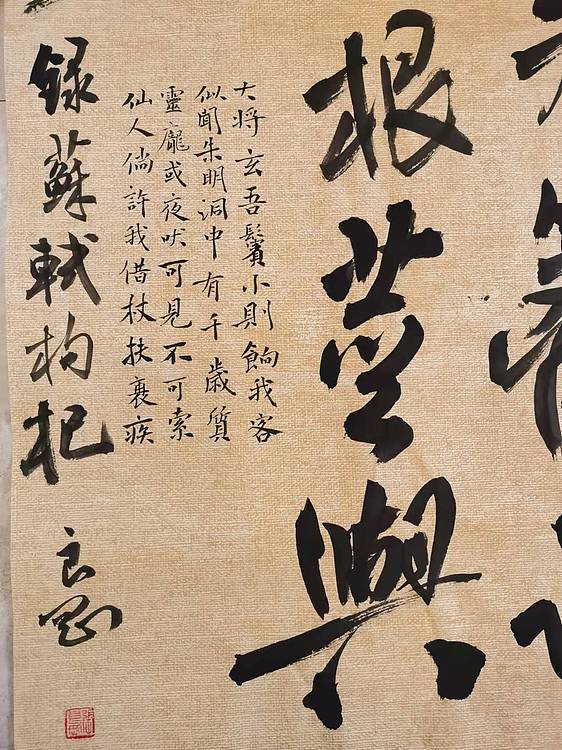 根莖與
大將玄吾鬢小則餉我客
似聞朱明洞中有千歲質
靈龐或夜吠可見不可索
仙人倘許我借杖扶衰疾
録蘇軾枸杞
良